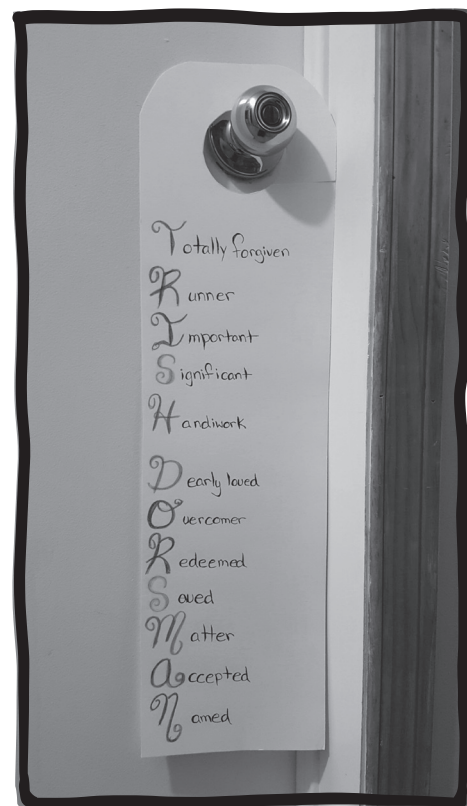 Totally forgiven
Runner
Important
Significant
Handiwork
Dearly loved
Overcomer
Redeemed
Saved
Matter
Accepted
Named